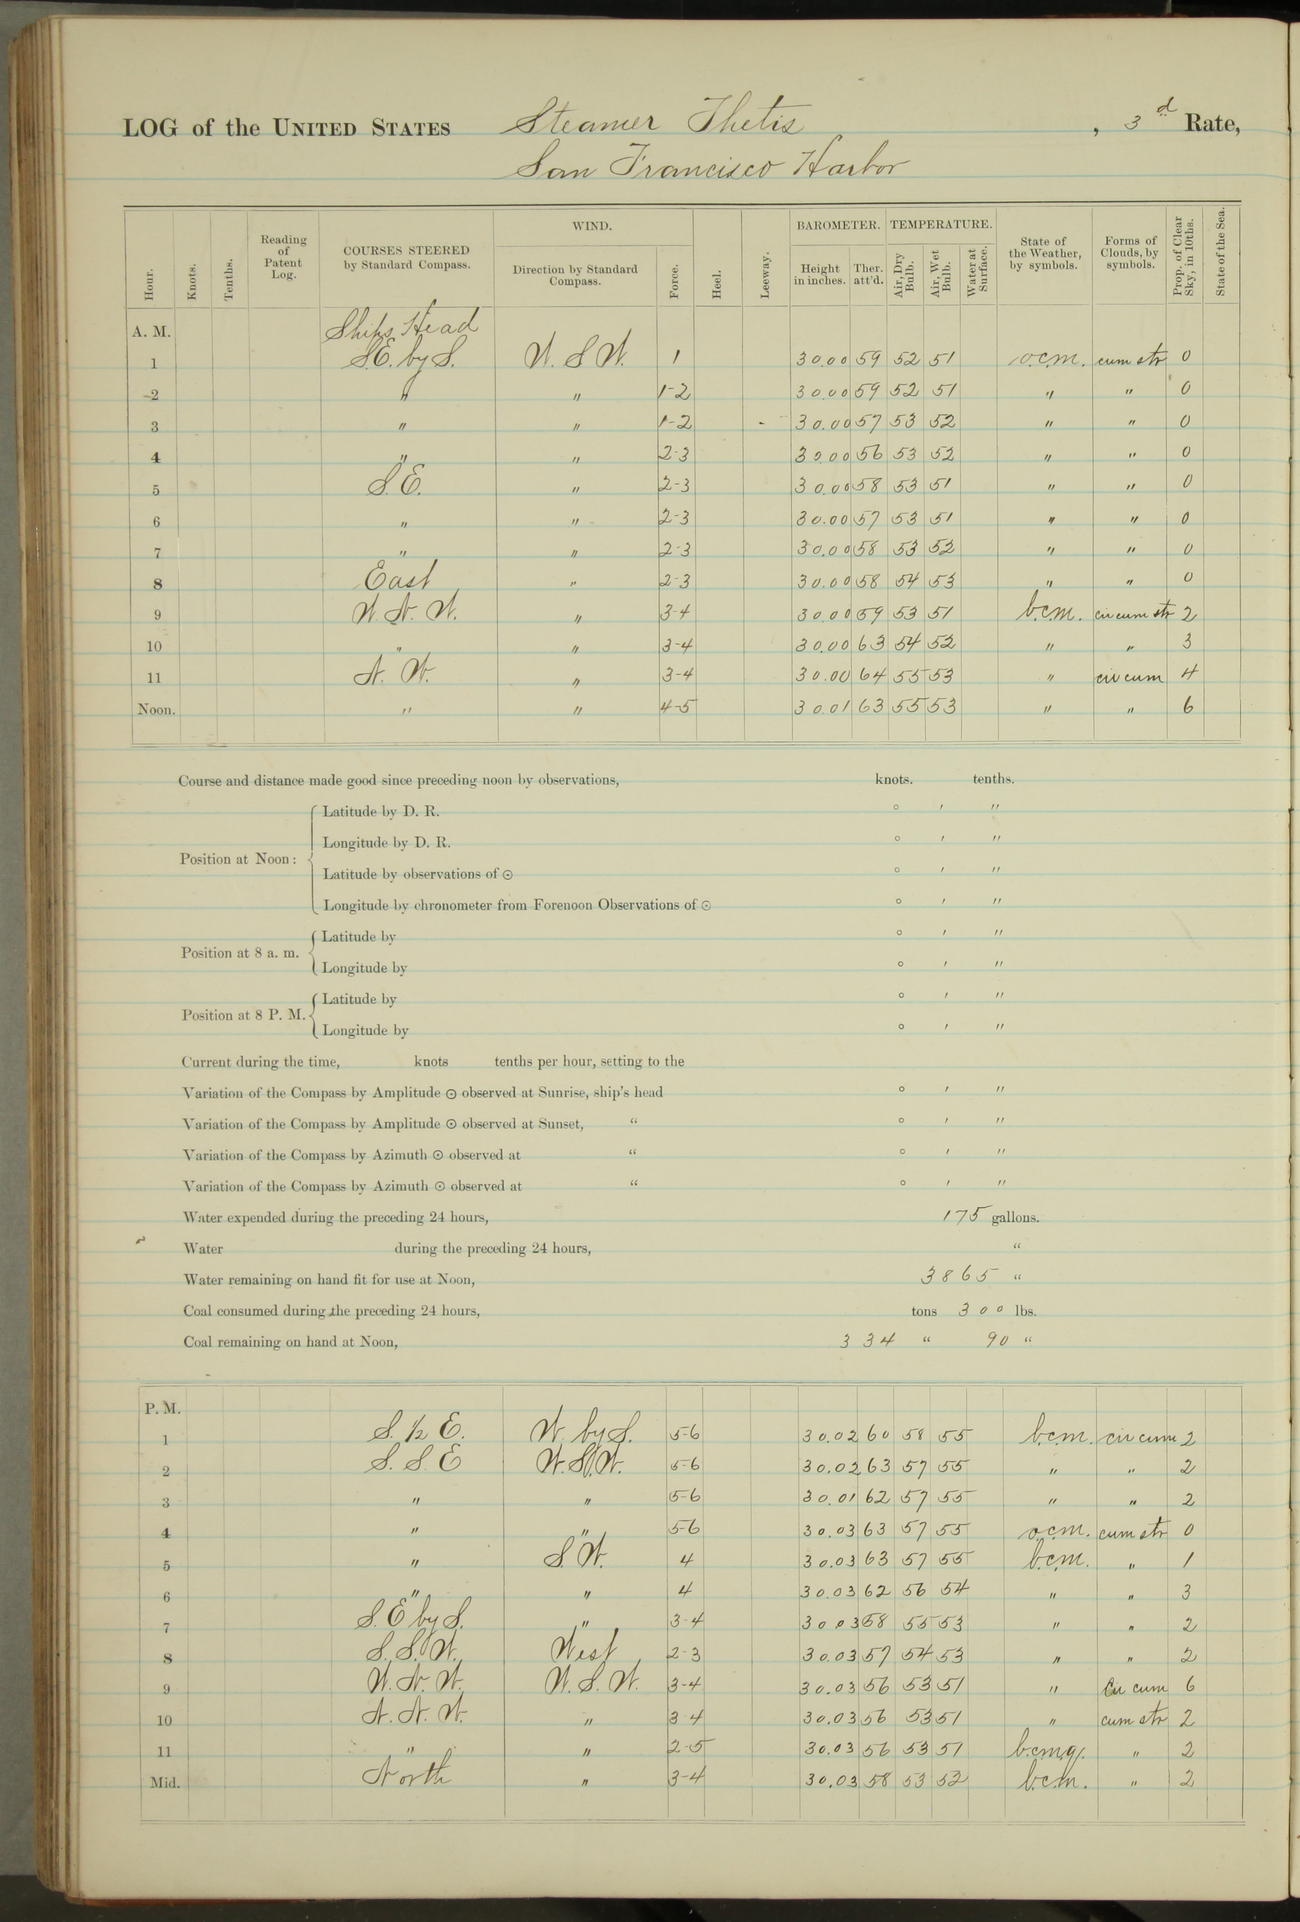 LOG of the UNITED STATES Steamer Thetis, 3d Rate,
San Francisco Harbor
Hour. Knots. Tenths. Reading of Patent Log. COURSES STEERED by Standard Compass. WIND. Direction by Standard Compass. Force. Heel. Leeway. BAROMETER. Height in inches. Ther. att'd. TEMPERATURE. Air, Dry Bulb. Air, Wet Bulb. Water at Surface. State of the Weather, by symbols. Forms of Clouds, by symbols. Prop. of Clear Sky, in 10ths. State of the Sea.
A. M. Ships Head
1 S.E. by S. W. S W. 1 30.00 59 52 51 o.c.m. cum str 0
2 " " 1-2 30.00 59 52 51 " " 0
3 " " 1-2 30.00 57 53 52 " " 0
4 " " 2-3 30.00 56 53 52 " " 0
5 S.E. " 2-3 30.00 58 53 51 " " 0
6 " " 2-3 30.00 57 53 51 " " 0
7 " " 2-3 30.00 58 53 52 " " 0
8 East " 2-3 30.00 58 54 53 " " 0
9 W. N. W. " 3-4 30.00 59 53 51 b.c.m. cir cum str 2
10 " " 3-4 30.00 63 54 52 " " 3
11 N. W. " 3-4 30.00 64 55 53 " cir cum 4
Noon. " " 4-5 30.01 63 55 53 " " 6
Course and distance made good since preceding noon by observations, knots. tenths.
Position at Noon: Latitude by D. R. ° ′ ″
Longitude by D. R. ° ′ ″
Latitude by observations of ☉ ° ′ ″
Longitude by chronometer from Forenoon Observations of ☉ ° ′ ″
Position at 8 a. m. Latitude by ° ′ ″
Longitude by ° ′ ″
Position at 8 P. M. Latitude by ° ′ ″
Longitude by ° ′ ″
Current during the time, knots tenths per hour, setting to the
Variation of the Compass by Amplitude ☉ observed at Sunrise, ship's head ° ′ ″
Variation of the Compass by Amplitude ☉ observed at Sunset, “ ° ′ ″
Variation of the Compass by Azimuth ☉ observed at “ ° ′ ″
Variation of the Compass by Azimuth ☉ observed at “ ° ′ ″
Water expended during the preceding 24 hours, 175 gallons.
Water during the preceding 24 hours, “
Water remaining on hand fit for use at Noon, 3865 “
Coal consumed during the preceding 24 hours, tons 300 lbs.
Coal remaining on hand at Noon, 334 “ 90 “
P. M.
1 S. 1/2 E. W. by S. 5-6 30.02 60 58 55 b.c.m. cir cum 2
2 S. S. E W. S. W. 5-6 30.02 63 57 55 " " 2
3 " " 5-6 30.01 62 57 55 " " 2
4 " " 5-6 30.03 63 57 55 o.c.m. cum str 0
5 " S. W. 4 30.03 63 57 55 b.c.m. " 1
6 " " 4 30.03 62 56 54 " " 3
7 S. E by S. " 3-4 30.03 58 55 53 " " 2
8 S. S. W. West 2-3 30.03 57 54 53 " " 2
9 W. N. W. W. S. W. 3-4 30.03 56 53 51 " Cu cum 6
10 N. N. W. " 3-4 30.03 56 53 51 " cum str 2
11 " " 2-5 30.03 56 53 51 b.c.m.q. " 2
Mid. North " 3-4 30.03 58 53 52 b.c.m. " 2